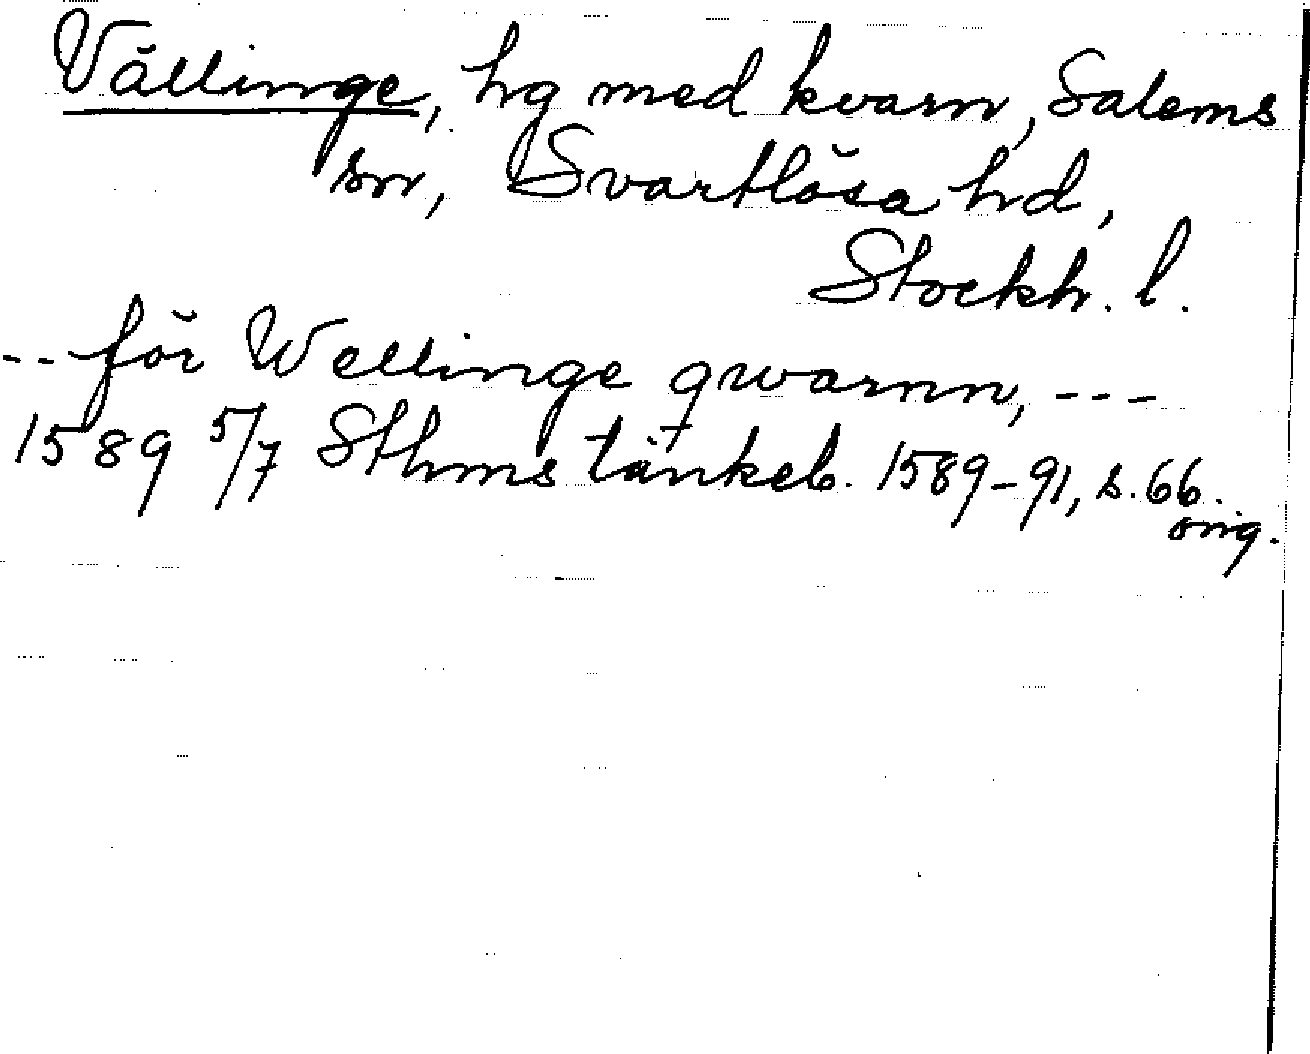 Vällinge, hg med kvarn, Salems
sn, Svartlösa hd,
Stockh. l.
-- för Wellinge qwarnn, ---
1589 5/7 Sthms tänkeb. 1589-91, s. 66.
orig.